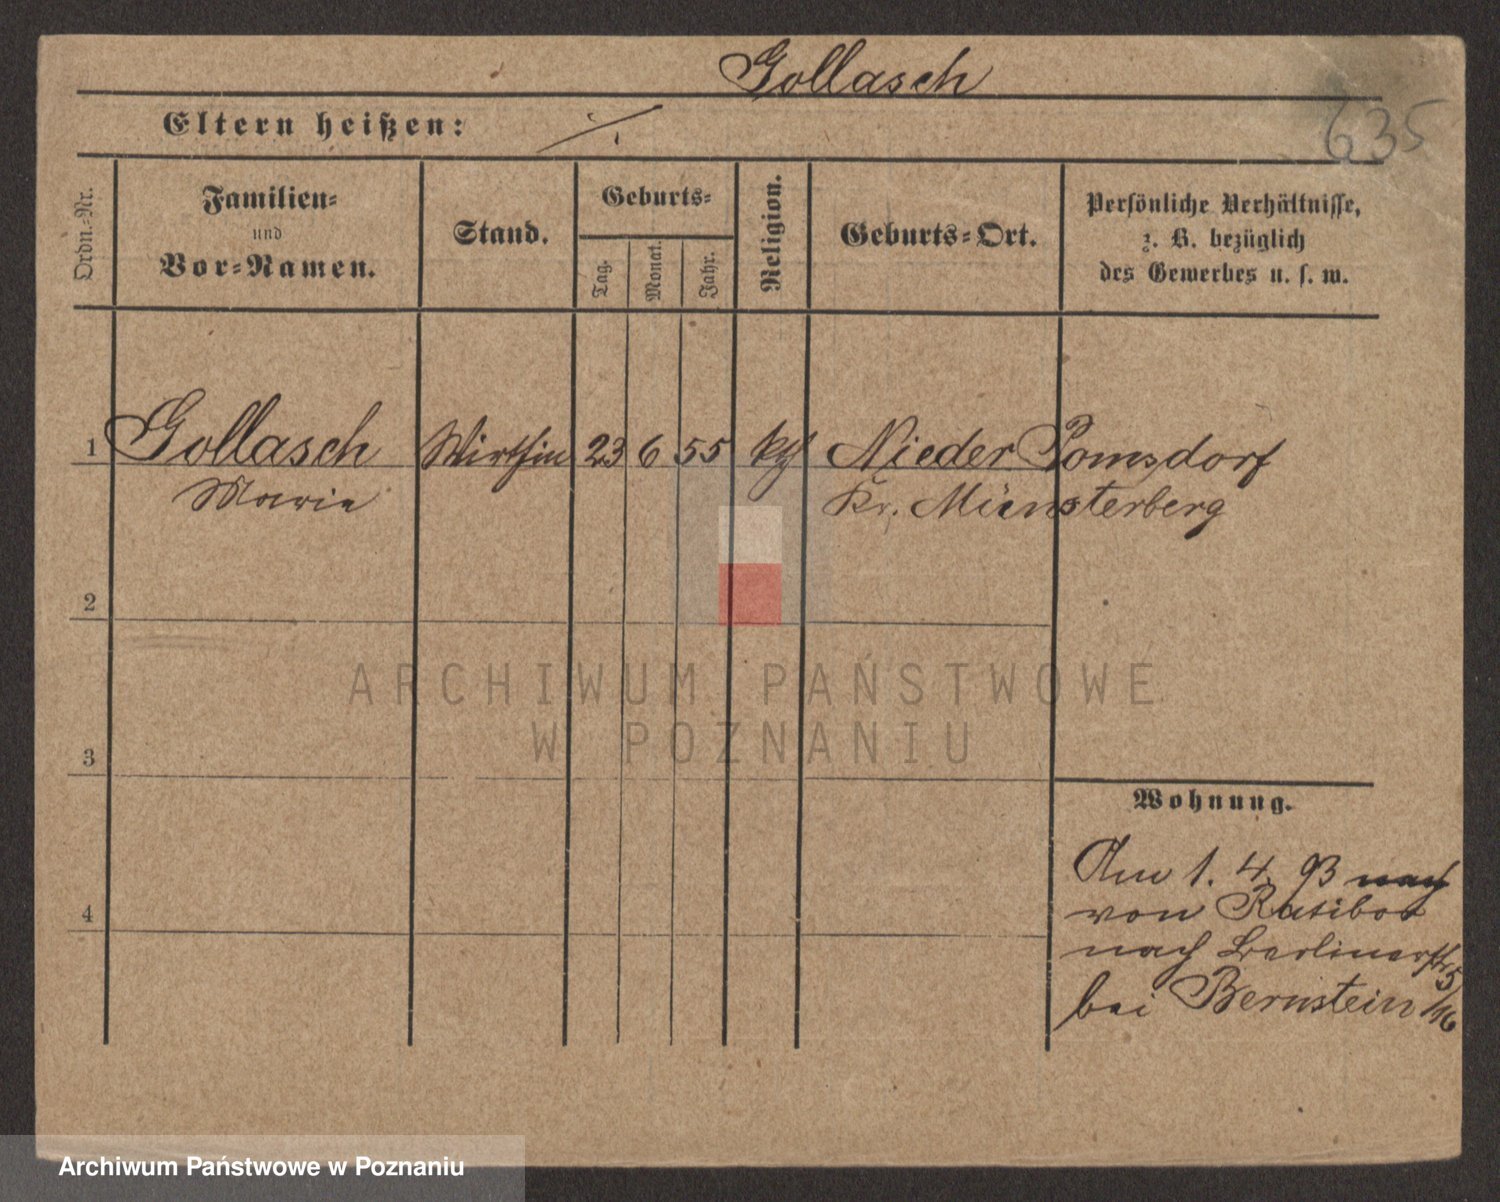 Gollasch
635
Eltern heißen: ./.
Ordn.-Nr.
Familien-
und
Vor-Namen.
Stand.
Geburts-
Tag.
Monat.
Jahr.
Religion.
Geburts-Ort.
Persönliche Verhältnisse,
z. B. bezüglich
des Gewerbes u. s. w.
1 Gollasch Wirthin 23 6 55 kth Nieder Pomsdorf
Marie Kr. Münsterberg
2
ARCHIWUM PAŃSTWOWE
W POZNANIU
3
Wohnung.
Am 1. 4. 93 nach
4 von Ratibor
nach Berlinerstr 5
bei Bernstein /16
Archiwum Państwowe w Poznaniu